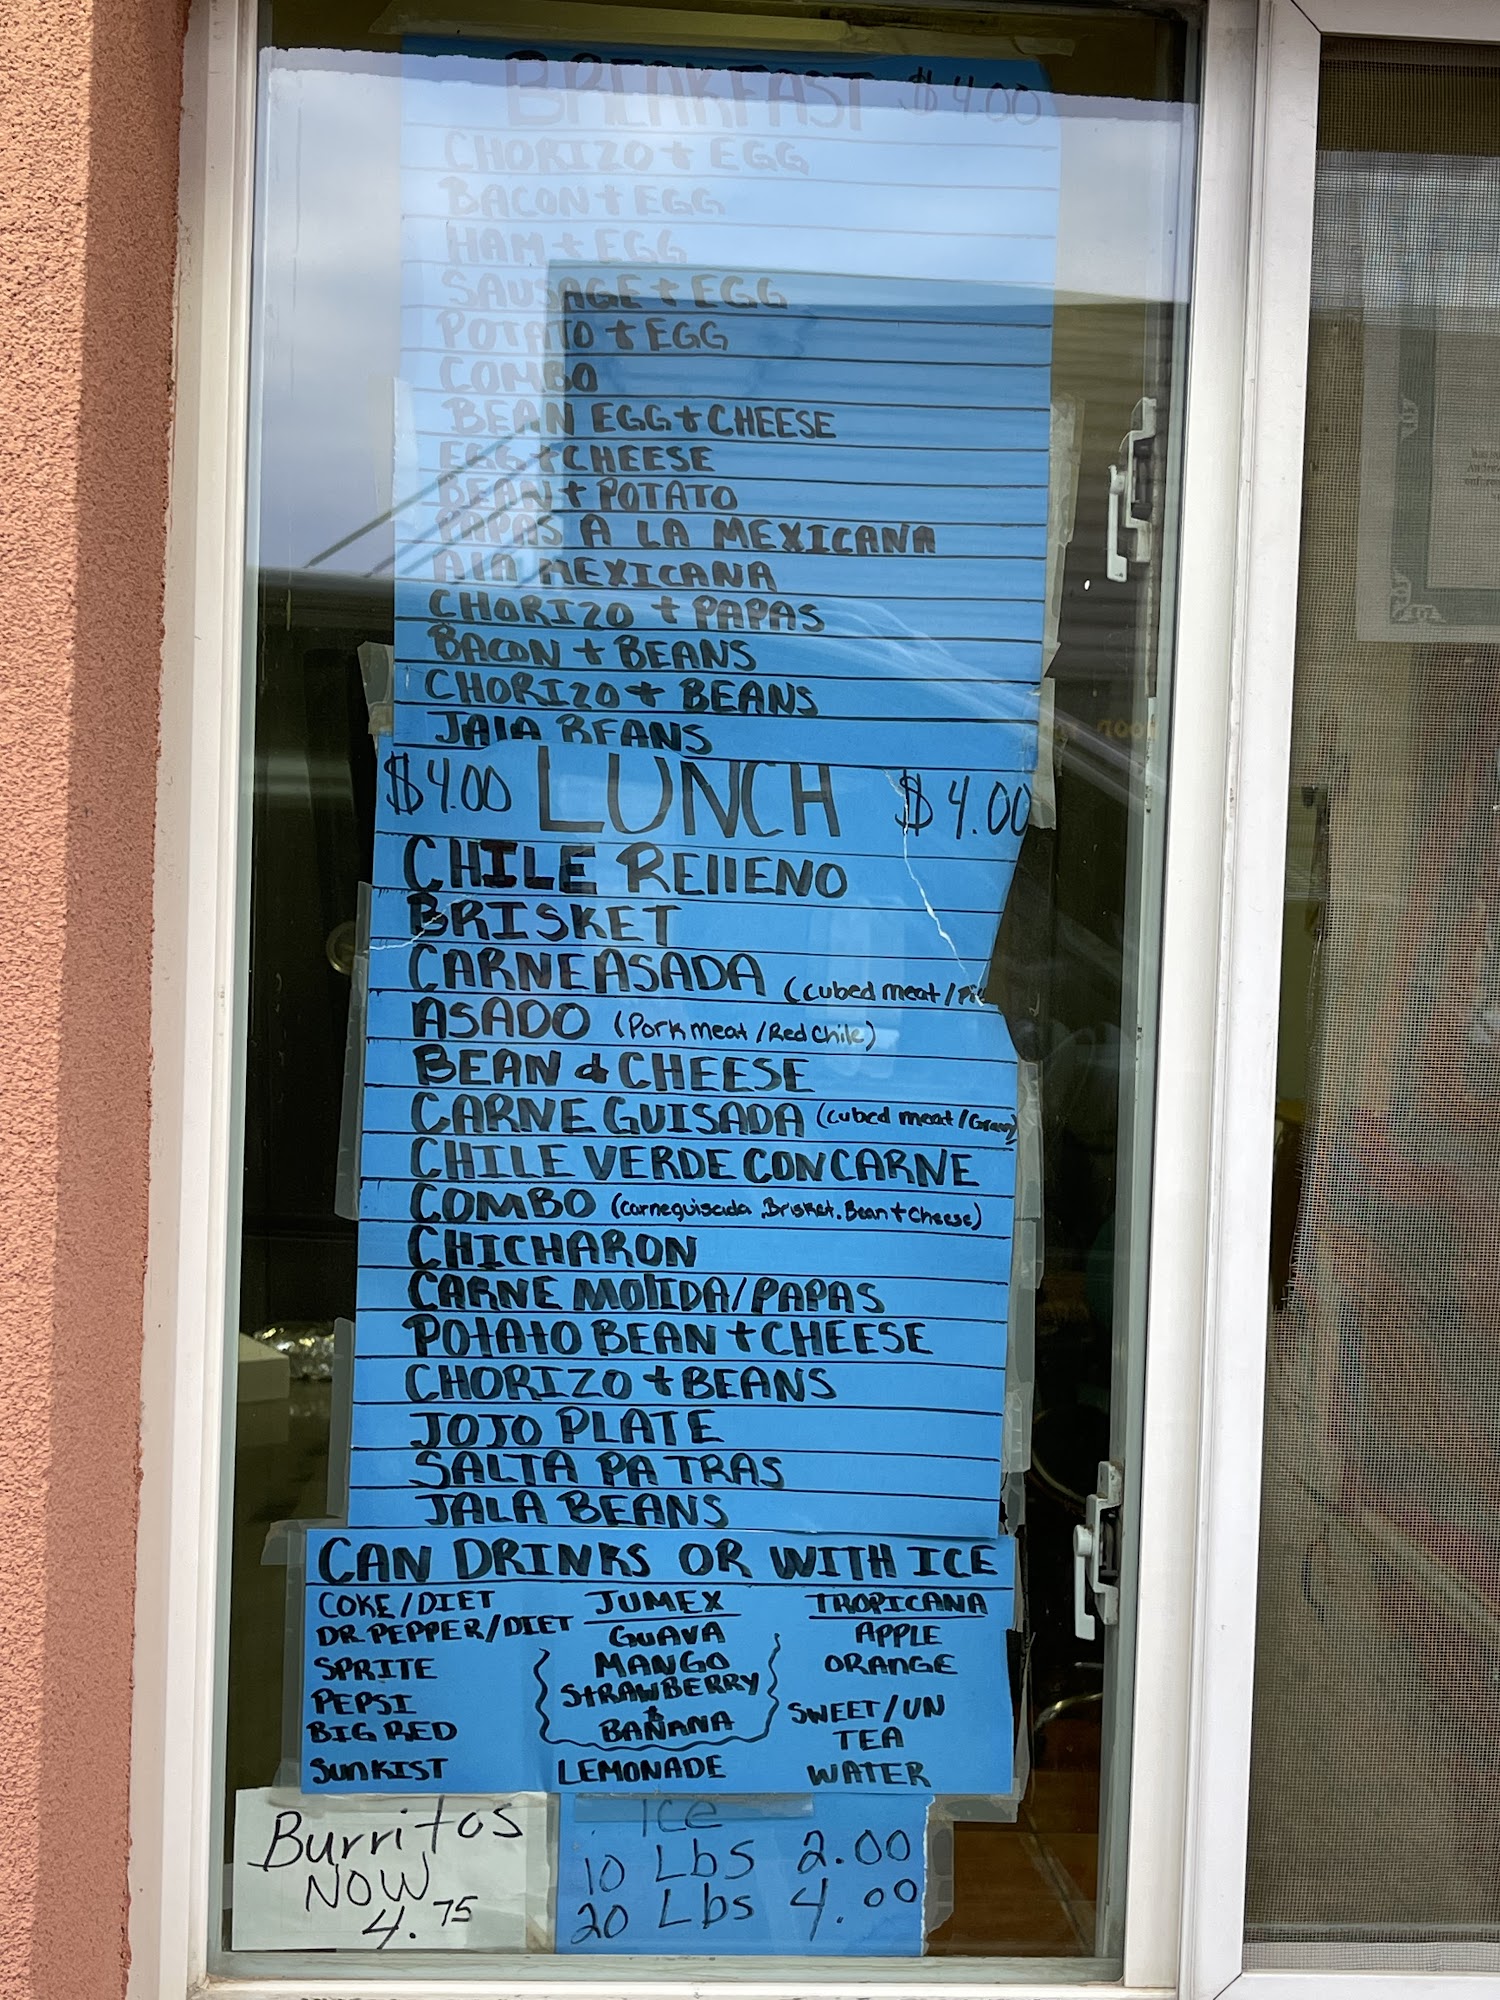 BREAKFAST $4.00
CHORIZO + EGG
BACON + EGG
HAM + EGG
SAUSAGE + EGG
POTATO + EGG
COMBO
BEAN EGG & CHEESE
EGG + CHEESE
BEAN + POTATO
PAPAS A LA MEXICANA
ALA MEXICANA
CHORIZO + PAPAS
BACON + BEANS
CHORIZO + BEANS
JALA BEANS
$4.00 LUNCH $4.00
CHILE RELLENO
BRISKET
CARNE ASADA (cubed meat/
ASADO (Pork meat/Red Chile)
BEAN & CHEESE
CARNE GUISADA (cubed meat/Gravy)
CHILE VERDE CON CARNE
COMBO (carneguisada, Brisket, Bean + Cheese)
CHICHARON
CARNE MOLIDA/PAPAS
POTATO BEAN + CHEESE
CHORIZO + BEANS
JOJO PLATE
SALTA PA TRAS
JALA BEANS
CAN DRINKS OR WITH ICE
COKE/DIET
DR. PEPPER/DIET
SPRITE
PEPSI
BIG RED
SUNKIST
JUMEX
GUAVA
MANGO
STRAWBERRY
&
BANANA
LEMONADE
TROPICANA
APPLE
ORANGE
SWEET/UN
TEA
WATER
Burritos
NOW
4.75
Ice
10 Lbs 2.00
20 Lbs 4.00